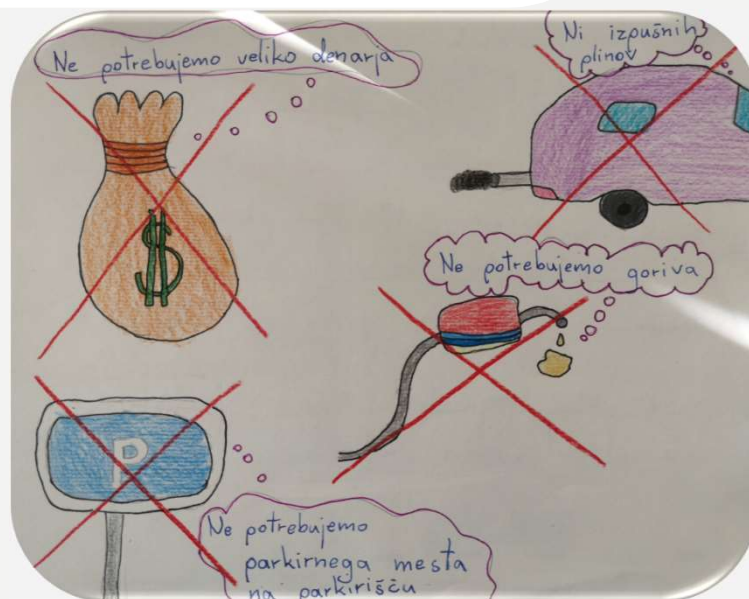 Ne potrebujemo veliko denarja
Ni izpušnih
plinov
$
Ne potrebujemo goriva
P
Ne potrebujemo
parkirnega mesta
na parkirišču